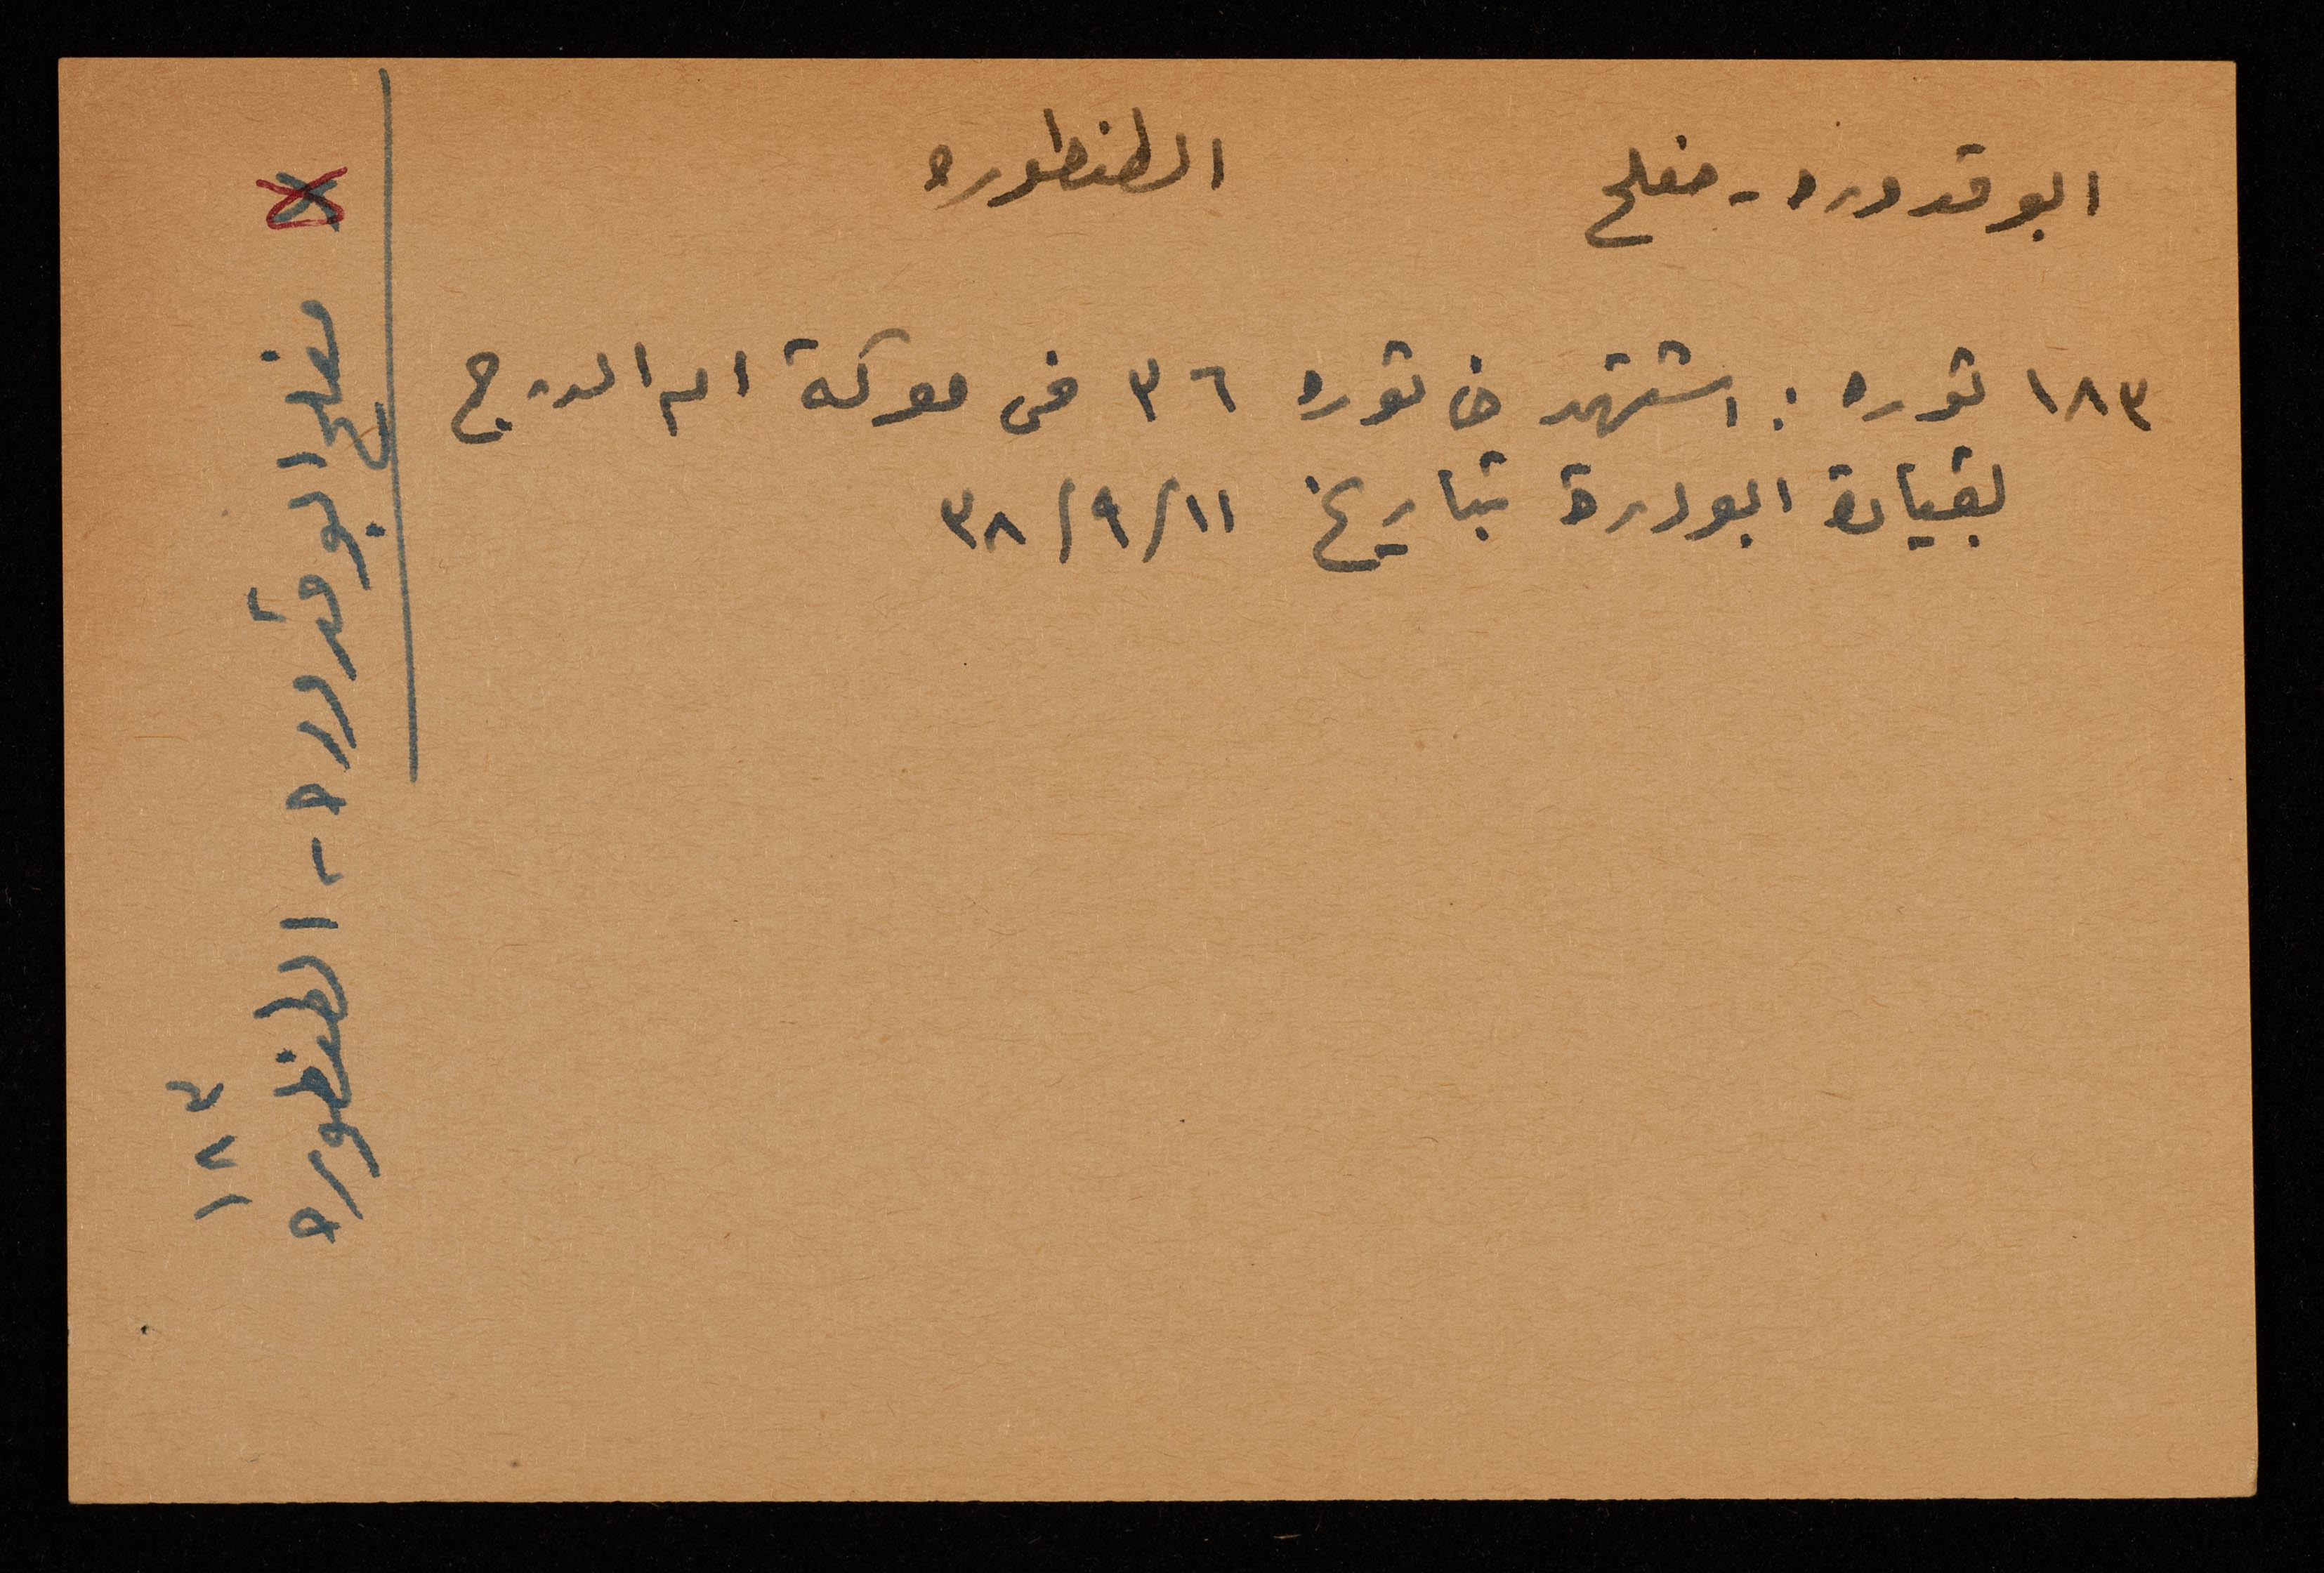 ابو قدوره - مفلح
الطنطوره
١٨٣ ثوره : استشهد في ثوره ٣٦ في معركة ام الدرج
بقيادة ابو درة بتاريخ ١١/٩/٣٨
مفلح ابو قدوره - الطنطوره
١٨٣